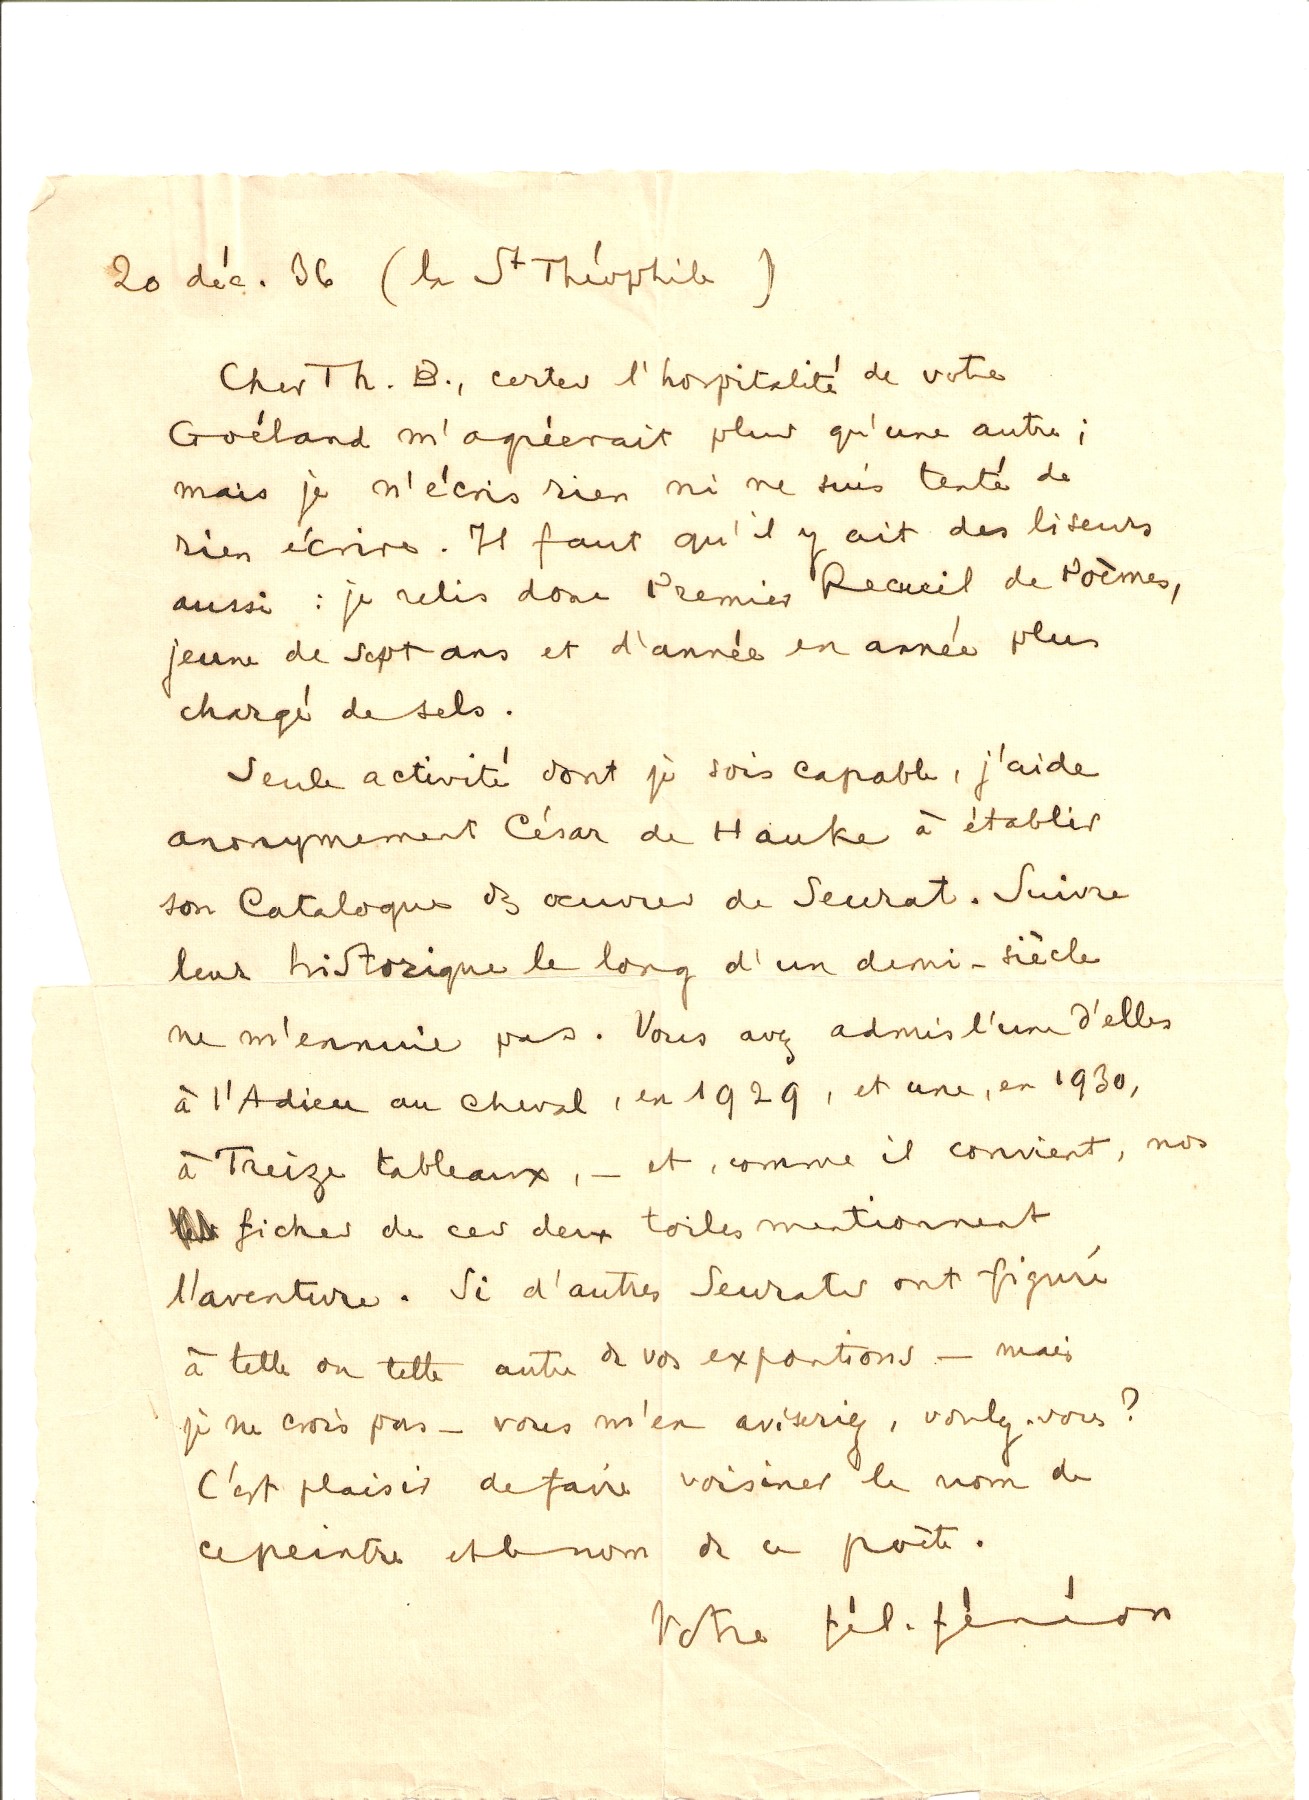 20 déc. 36 (la St Théophile)
Cher Th. B., certes l'hospitalité de votre
Goéland m'agréerait plus qu'une autre ;
mais je n'écris rien ni ne suis tenté de
rien écrire. Il faut qu'il y ait des liseurs
aussi : je relis donc Premier Recueil de Poèmes,
jeune de sept ans et d'année en année plus
chargé de sels.
Seule activité dont je sois capable, j'aide
anonymement César de Hauke à établir
son Catalogue des œuvres de Seurat. Suivre
leur historique le long d'un demi-siècle
ne m'ennuie pas. Vous avez admis l'une d'elles
à l'Adieu au cheval, en 1929, et une, en 1930,
à Treize tableaux, — et, comme il convient, nos
fiches de ces deux toiles mentionnent
l'aventure. Si d'autres Seurats ont figuré
à telle ou telle autre de vos expositions — mais
je ne crois pas — vous m'en aviseriez, voulez-vous ?
C'est plaisir de faire voisiner le nom de
ce peintre et le nom de ce poète.
Votre fél. fénéon